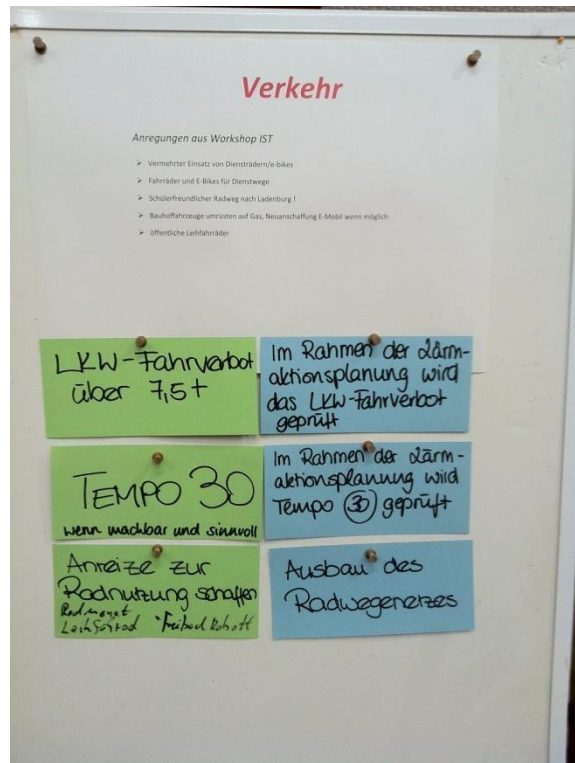 Verkehr
Anregungen aus Workshop IST
➢ Vermehrter Einsatz von Diensträdern/e-bikes
➢ Fahrräder und E-Bikes für Dienstwege
➢ Schülerfreundlicher Radweg nach Ladenburg !
➢ Bauhoffahrzeuge umrüsten auf Gas, Neuanschaffung E-Mobil wenn möglich
➢ öffentliche Leihfahrräder
LKW-Fahrverbot
über 7,5t
Im Rahmen der Lärm-
aktionsplanung wird
das LKW-Fahrverbot
geprüft
TEMPO 30
wenn machbar und sinnvoll
Im Rahmen der Lärm-
aktionsplanung wird
Tempo 30 geprüft
Anreize zur
Radnutzung schaffen
Leihfahrrad Freibad Rabatt
Ausbau des
Radwegenetzes